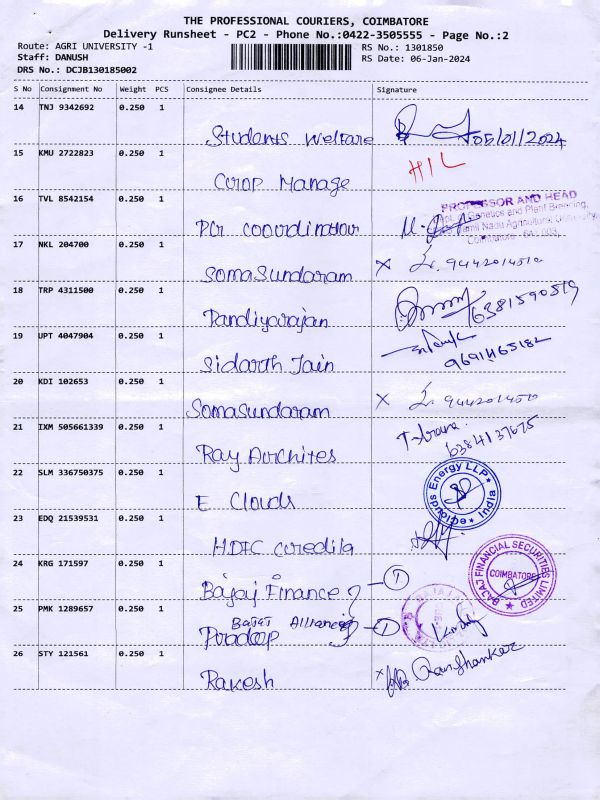 THE PROFESSIONAL COURIERS, COIMBATORE
Delivery Runsheet - PC2 - Phone No.:0422-3505555 - Page No.:2
Route: AGRI UNIVERSITY -1 RS No.: 1301850
Staff: DANUSH RS Date: 06-Jan-2024
DRS No.: DCJB130185002
S No Consignment No Weight PCS Consignee Details Signature
14 TNJ 9342692 0.250 1
Students Welfare 05/01/2024
15 KMU 2722823 0.250 1
HIL
Corop Manage
16 TVL 8542154 0.250 1
PROFESSOR AND HEAD
Dept. of Genetics and Plant Breeding,
Tamil Nadu Agricultural University,
Coimbatore - 641 003.
PG coordinatour
17 NKL 204700 0.250 1
Somasundaram x 9442014510
18 TRP 4311500 0.250 1
Pandiyarajan 6381590519
19 UPT 4047904 0.250 1
Sidarth Jain 9691465182
20 KDI 102653 0.250 1
Somasundaram x 9442014510
21 IXM 505661339 0.250 1
6384137675
Ray Airchites
22 SLM 336750375 0.250 1
eclouds Energy LLP India
E Clouds
23 EDQ 21539531 0.250 1
HDFC credila
24 KRG 171597 0.250 1
BAJAJ FINANCIAL SECURITIES LIMITED
COIMBATORE
Bajaj Finance 1
25 PMK 1289657 0.250 1
Bajaj Allianz 1
Pradeep
26 STY 121561 0.250 1
x Ravishankar
Rakesh